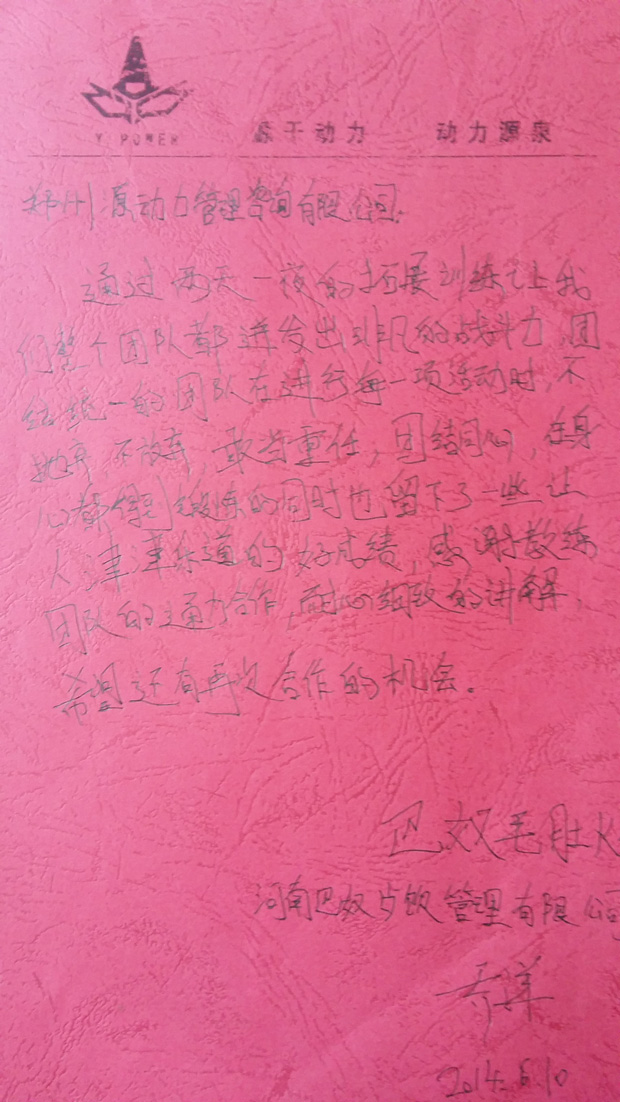 Y POWER
源于动力 动力源泉
郑州原动力管理咨询有限公司.
通过两天一夜的拓展训练让我
们整个团队都迸发出非凡的战斗力,团
结统一的团队在进行每一项活动时,不
抛弃 不放弃,敢当重任,团结同心,在身
心都得到锻炼的同时也留下了一些让
人津津乐道的好成绩,感谢教练
团队的通力合作,耐心细致的讲解,
希望还有再次合作的机会。
巴奴毛肚火
河南巴奴餐饮管理有限公司
2014.6.10